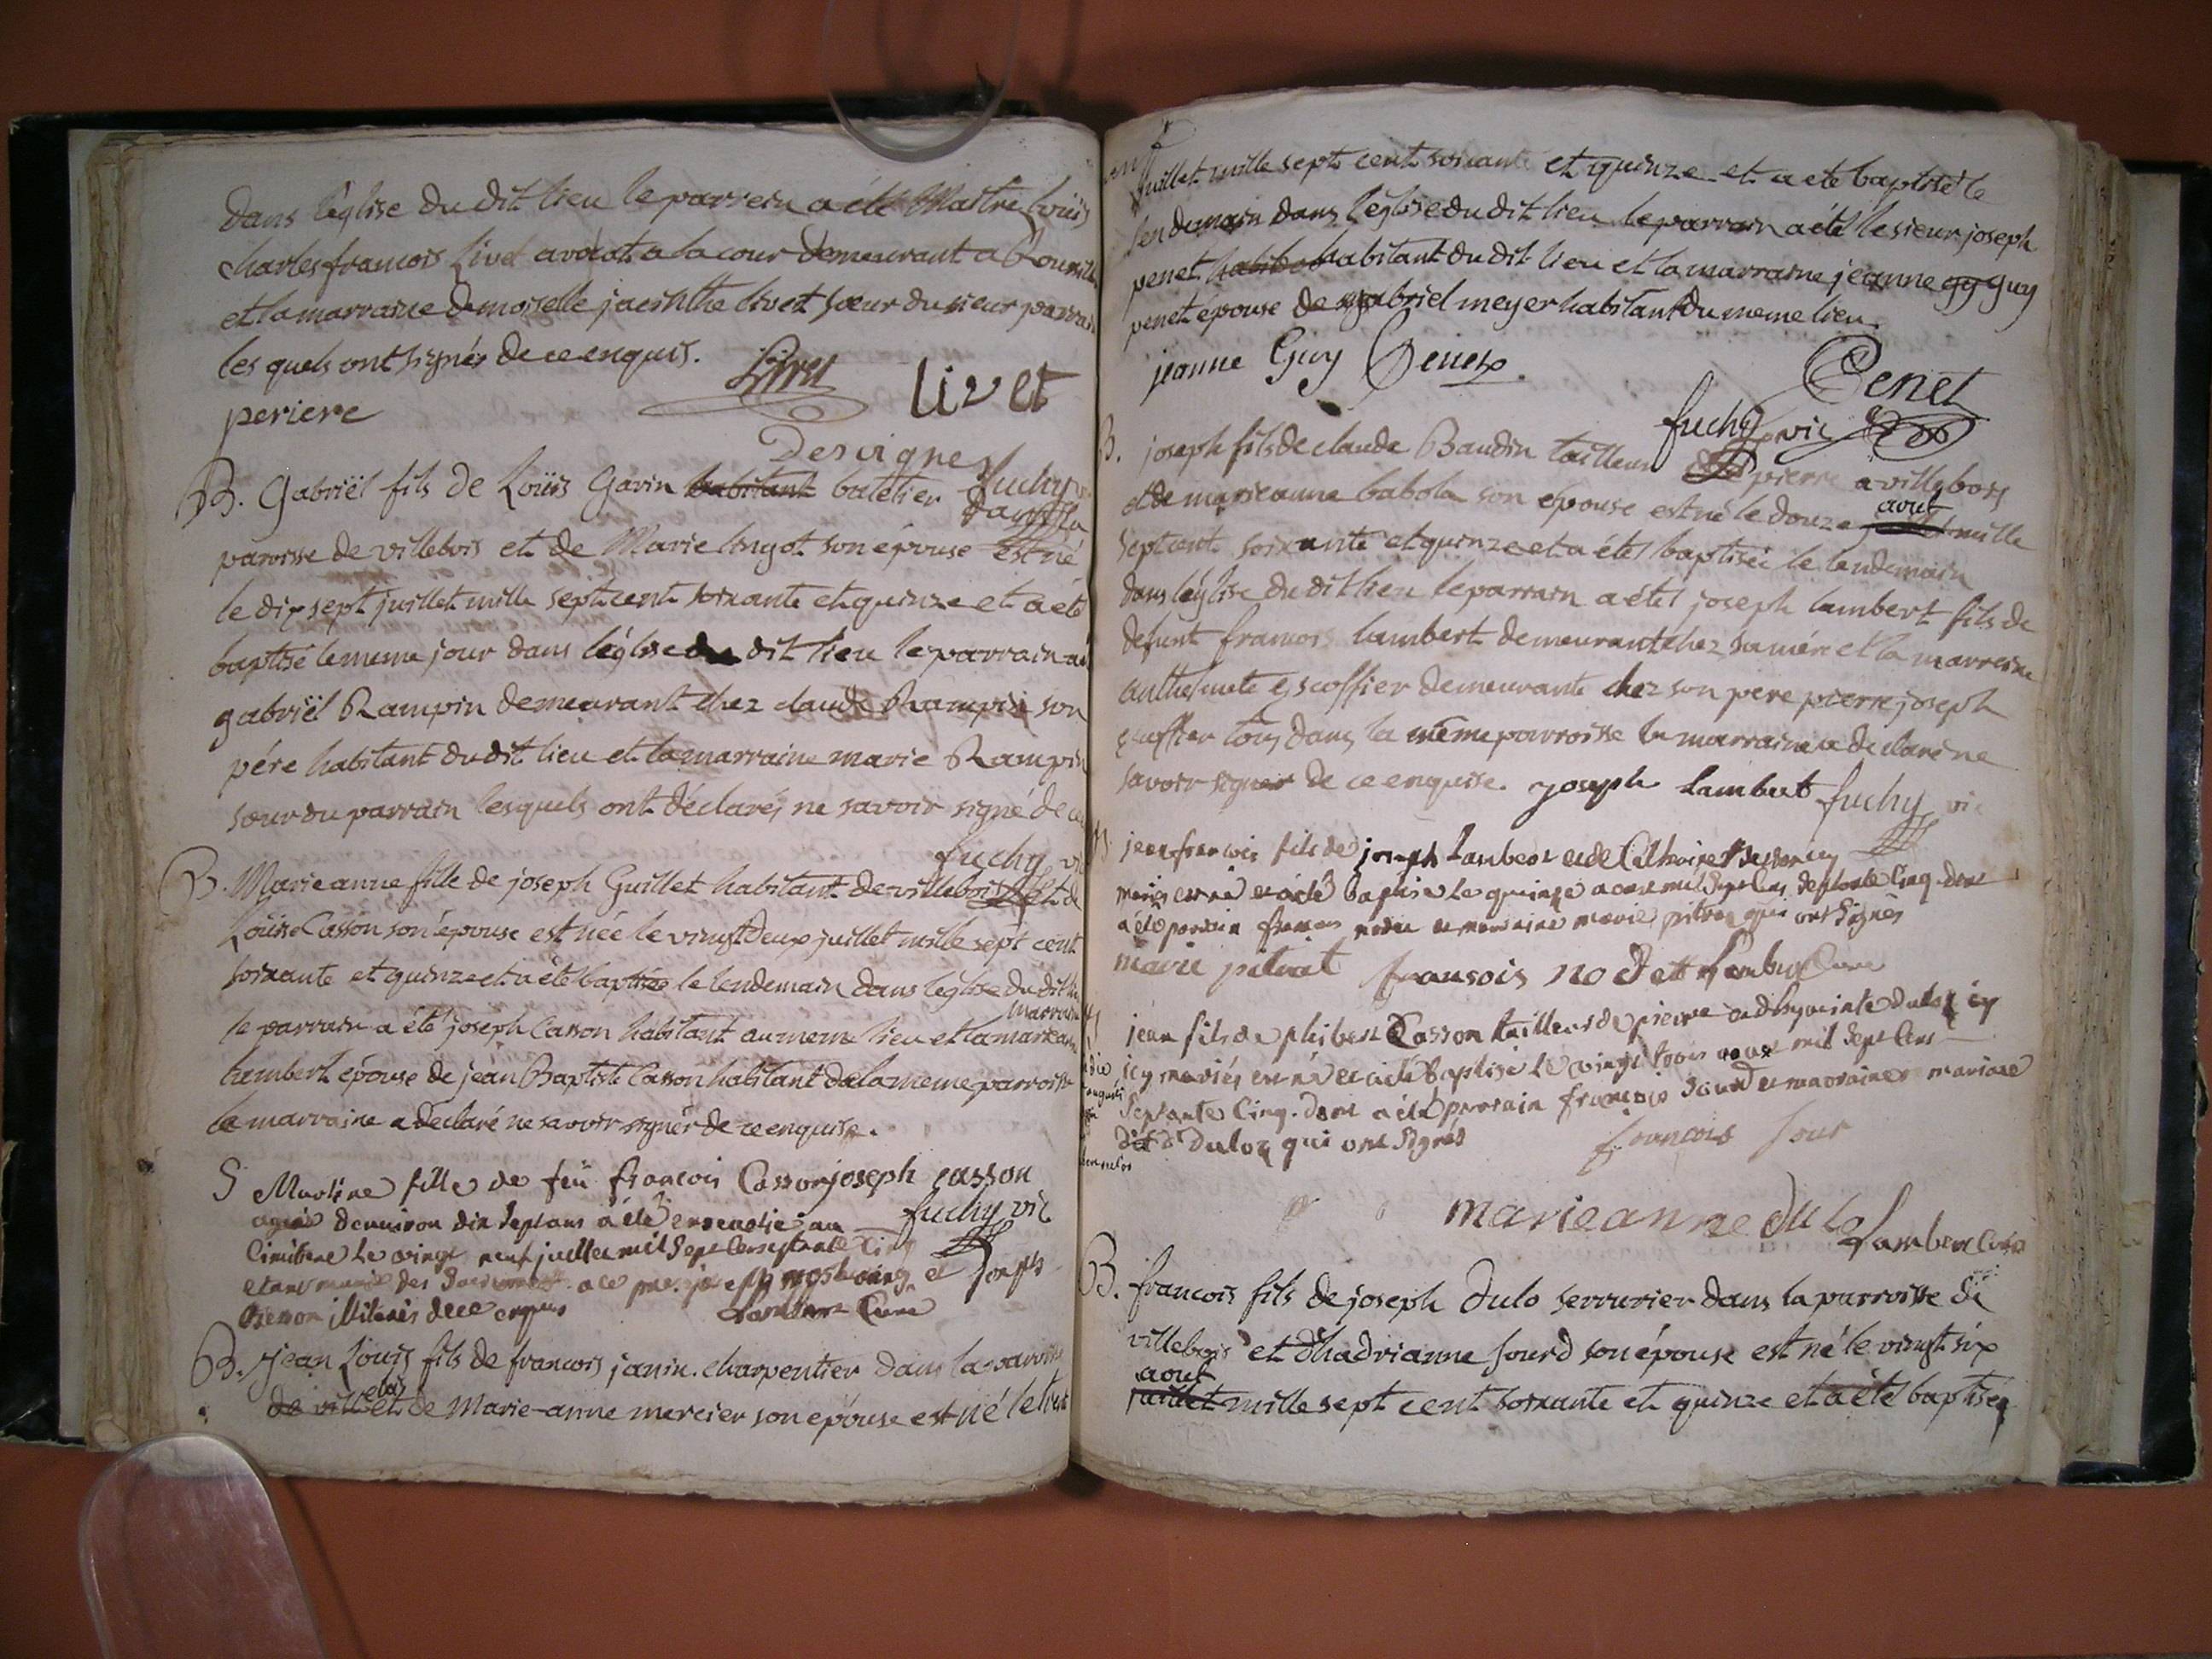 dans l'église du dit lieu le parrein a été Maitre Loüis
charles francois Livet avocat a la cour demeurant a
et la marraine demoiselle jacinthe livet sœur du sieur parrain
les quels ont signés de ce enquis. Livet livet
periere
Desvignes
B. Gabriël fils de Loüis Gavin habitant batelier dans la fuchy
paroisse de villebois et de Marie lingot son épouse est né
le dix sept juillet mille sept cent soixante et quinze et a été
baptisé le meme jour dans léglise du dit lieu le parrain a
gabriël Rampin demeurant chez claude Rampin son
pére habitant du dit lieu et la marraine marie Rampin
sœur du parrain lesquels ont déclarés ne savoir signé de ce
fuchy vi
B. Marie anne fille de joseph Guillet habitant de villebois et de
Loüise Casson son épouse est née le vingt deux juillet mille sept cent
soixante et quinze et a été baptisée le lendemain dans léglise du dit lieu
le parrain a été joseph Casson habitant au meme lieu et la marraine
humbert épouse de jean Baptiste Casson habitant de la meme parroisse
la marraine a declaré ne savoir signér de ce enquise.
S Martine fille de feü francois Casson joseph casson
agée d'environ dix sept ans a été ensevelie au fuchy vic
Cimitiere le vingt neuf juillet mil sept cens septante cinq
et joseph
illiterés de ce enquis Lambert Curé
B. Jean Louis fils de francois janin charpentier dans la paroisse
de villebois et de Marie-anne mercier son epouse est né le trent
juillet mille sept cent soixante et quinze et a été baptisé le
lendemain dans léglise du dit lieu le parrain a été le sieur joseph
penet habitant du dit lieu et la marraine jeanne gy guy
penet épouse de gabriel meyer habitant du meme lieu.
jeanne Guy Penet Penet
fuchy vic
B. joseph fils de claude Baudin tailleur de pierre a villebois
et de marie anne babola son épouse est né le douze aout mille
sept cent soixante et quinze et a été baptisé le lendemain
dans léglise du dit lieu le parrain a été joseph lambert fils de
defunt francois lambert demeurant chez sa mére et la marreine
anthelmete Escoffier demeurante chez son pere pierre joseph
escoffier tous dans la même parroisse la marraine a declaré ne
savoir signer de ce enquise. joseph lambert fuchy vic
B jean francois fils de joseph Lambert et de Catherine
mariés est né et a été baptisé le quinze aoust mil sept cens septante cinq. dont
a été parrain francois nodet et marraine marie pitrat qui ont signés
marie pitrat fransois nodet Lambert Curé
jean fils de philibert Casson tailleur de pierre et d'hyacinte duloz
icy mariés est né et a été baptisé le vingt trois aoust mil sept cens
septante cinq. dont a été parrain françois sourd et marraine mariane
duloz qui ont signés francois sour
marie anne dulo Lambert Curé
B. francois fils de joseph dulo serrurier dans la parroisse de
villebois et d'hadrianne sourd son épouse est né le vingt six
aout
juillet mille sept cent soixante et quinze et a été baptisé